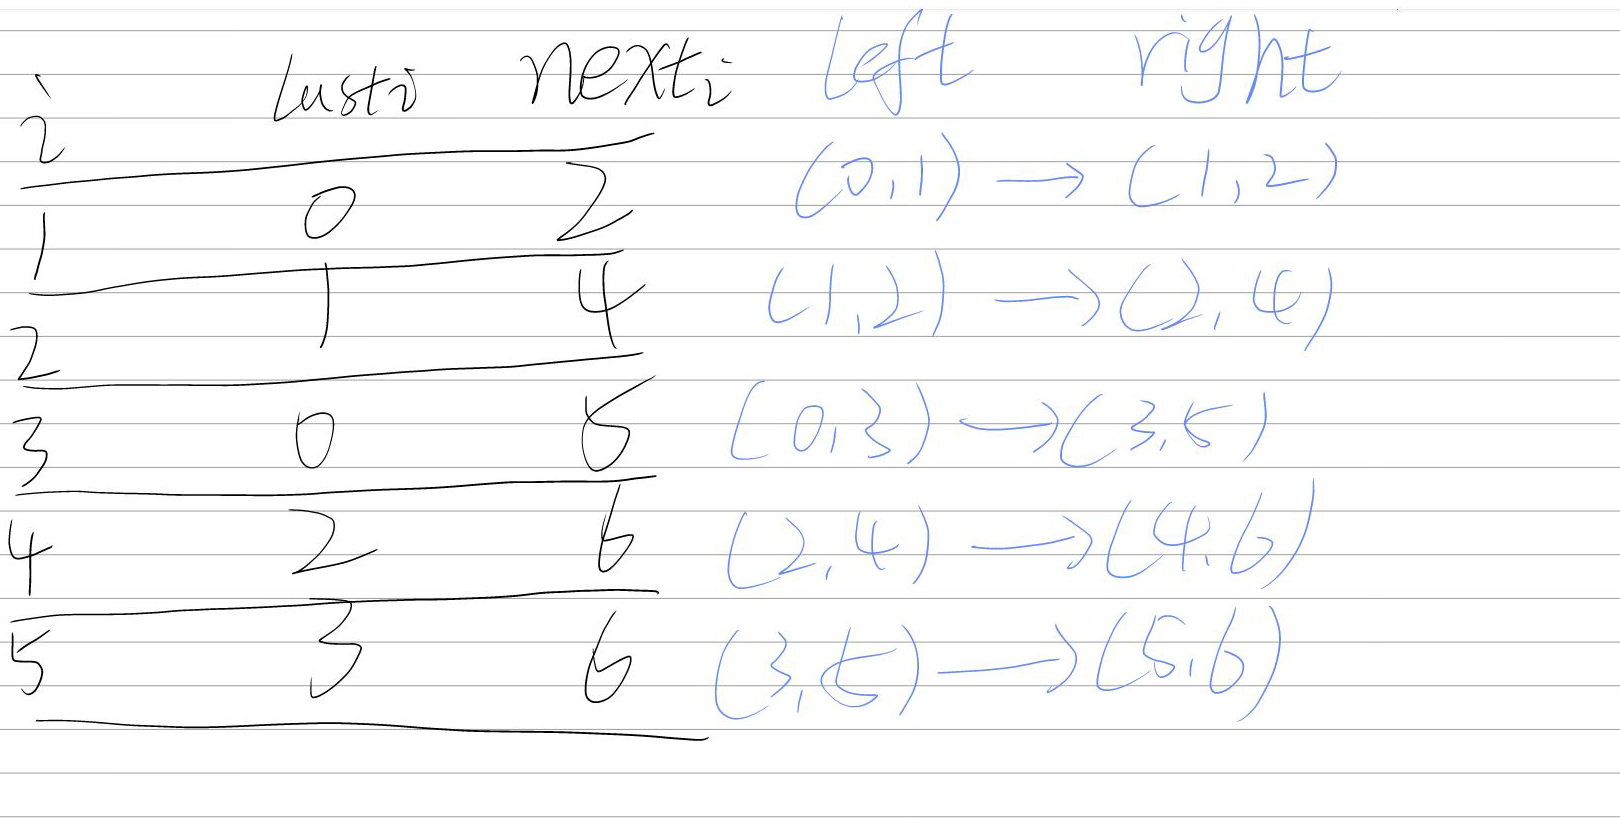 i lasti nexti left right
1 0 2 (0,1) → (1,2)
2 1 4 (1,2) → (2,4)
3 0 5 (0,3) → (3,5)
4 2 6 (2,4) → (4,6)
5 3 6 (3,5) → (5,6)